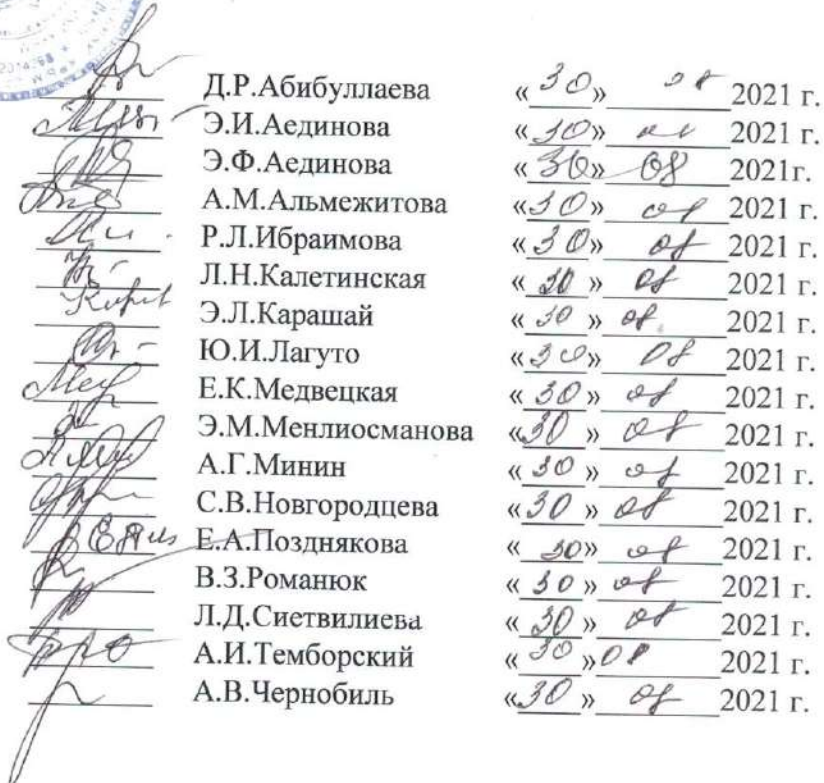 Д.Р.Абибуллаева «30» 08 2021 г.
Э.И.Аединова «30» 2021 г.
Э.Ф.Аединова «30» 08 2021г.
А.М.Альмежитова «30» 08 2021 г.
Р.Л.Ибраимова «30» 08 2021 г.
Л.Н.Калетинская «30» 08 2021 г.
Э.Л.Карашай «30» 08. 2021 г.
Ю.И.Лагуто «30» 08 2021 г.
Е.К.Медвецкая «30» 08 2021 г.
Э.М.Менлиосманова «30» 08 2021 г.
А.Г.Минин «30» 08 2021 г.
С.В.Новгородцева «30» 08 2021 г.
Е.А.Позднякова «30» 08 2021 г.
В.З.Романюк «30» 08 2021 г.
Л.Д.Сиетвилиева «30» 08 2021 г.
А.И.Темборский «30» 08 2021 г.
А.В.Чернобиль «30» 08 2021 г.